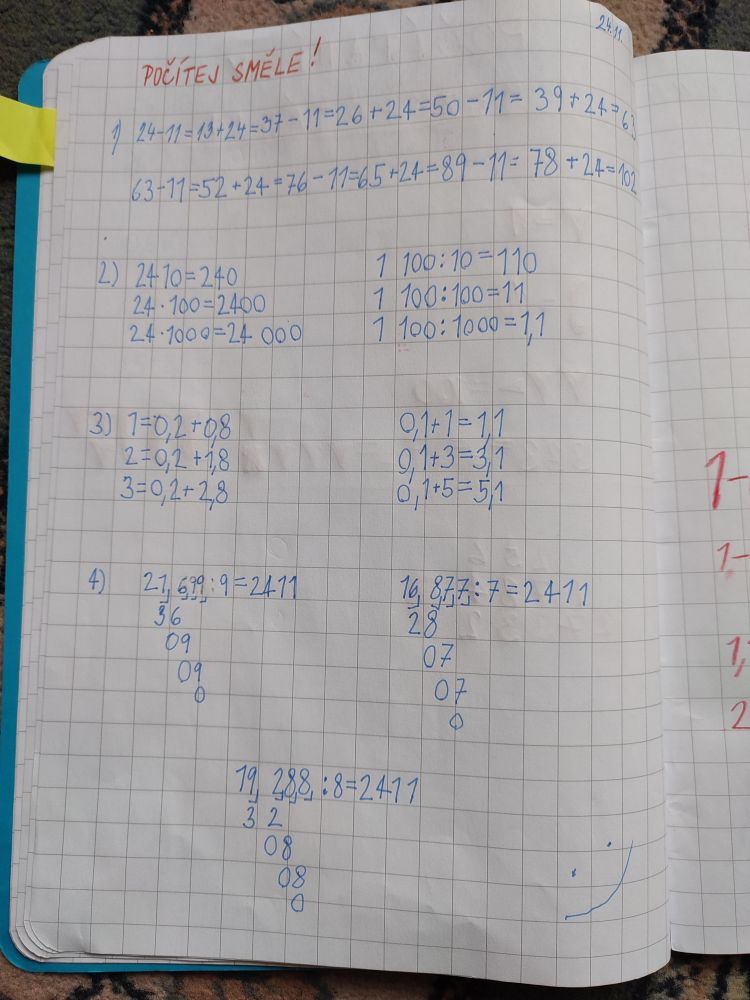 24.11.
POČÍTEJ SMĚLE!
1) 24-11=13+24=37-11=26+24=50-11=39+24=63
63-11=52+24=76-11=65+24=89-11=78+24=102
2) 24·10=240 1 100:10=110
24·100=2400 1 100:100=11
24·1000=24 000 1 100:1000=1,1
3) 1=0,2+0,8 0,1+1=1,1
2=0,2+1,8 0,1+3=3,1
3=0,2+2,8 0,1+5=5,1
4) 21,699:9=2411 16,877:7=2411
36 28
09 07
09 07
0 0
19,288:8=2411
32
08
08
0
1-
1-
1,
2